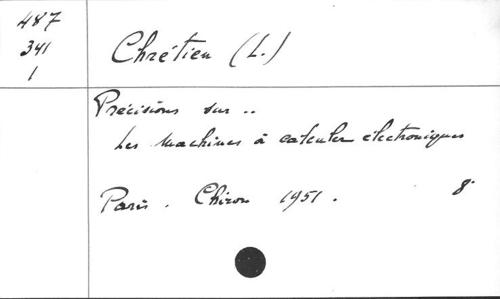 487
341
1
Chrétien (L.)
Précisions sur ..
Les machines à calculer électroniques
Paris. Chiron 1951. 8º